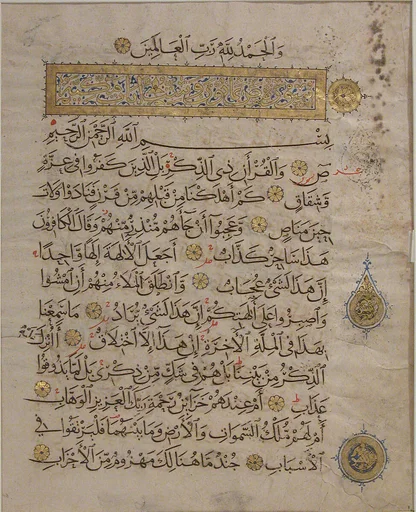 وَالْحَمْدُ لِلَّهِ رَبِّ الْعَالَمِينَ
بِسْمِ اللَّهِ الرَّحْمَنِ الرَّحِيمِ
صٓ وَالْقُرْآنِ ذِي الذِّكْرِ بَلِ الَّذِينَ كَفَرُوا فِي عِزَّةٍ
وَشِقَاقٍ كَمْ أَهْلَكْنَا مِنْ قَبْلِهِمْ مِنْ قَرْنٍ فَنَادَوْا وَلَاتَ
حِينَ مَنَاصٍ وَعَجِبُوا أَنْ جَاءَهُمْ مُنْذِرٌ مِنْهُمْ وَقَالَ الْكَافِرُونَ
هَذَا سَاحِرٌ كَذَّابٌ أَجَعَلَ الْآلِهَةَ إِلَهًا وَاحِدًا
إِنَّ هَذَا لَشَيْءٌ عُجَابٌ وَانْطَلَقَ الْمَلَأُ مِنْهُمْ أَنِ امْشُوا
وَاصْبِرُوا عَلَى آلِهَتِكُمْ إِنَّ هَذَا لَشَيْءٌ يُرَادُ مَا سَمِعْنَا
بِهَذَا فِي الْمِلَّةِ الْآخِرَةِ إِنْ هَذَا إِلَّا اخْتِلَاقٌ أَأُنْزِلَ
عليه
الذِّكْرُ مِنْ بَيْنِنَا بَلْ هُمْ فِي شَكٍّ مِنْ ذِكْرِي بَلْ لَمَّا يَذُوقُوا
عَذَابِ أَمْ عِنْدَهُمْ خَزَائِنُ رَحْمَةِ رَبِّكَ الْعَزِيزِ الْوَهَّابِ
أَمْ لَهُمْ مُلْكُ السَّمَوَاتِ وَالْأَرْضِ وَمَا بَيْنَهُمَا فَلْيَرْتَقُوا فِي
الْأَسْبَابِ جُنْدٌ مَا هُنَالِكَ مَهْزُومٌ مِنَ الْأَحْزَابِ